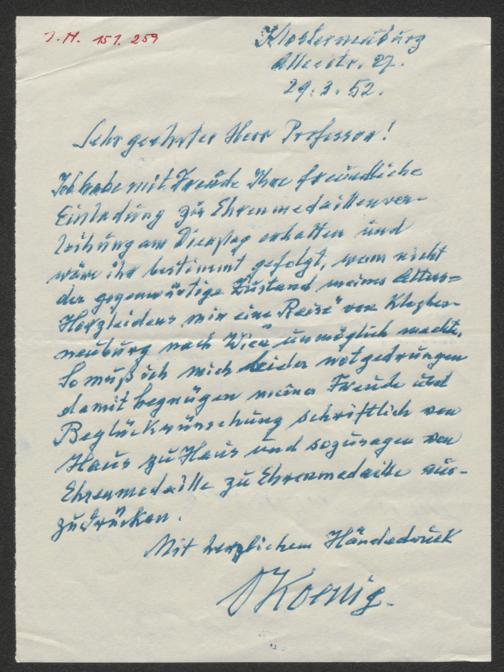 I.N. 151.259
Klosterneuburg
Alleestr. 27.
29.3.52.
Sehr geehrter Herr Professor!
Ich habe mit Freude Ihre freundliche
Einladung zur Ehrenmedaillenver-
leihung am Dienstag erhalten und
wäre ihr bestimmt gefolgt, wenn nicht
der gegenwärtige Zustand meines Alters-
Herzleidens mir eine "Reise" von Kloster-
neuburg nach Wien unmöglich machte.
So muß ich mich leider notgedrungen
damit begnügen meine Freude und
Beglückwünschung schriftlich von
Haus zu Haus und sozusagen von
Ehrenmedaille zu Ehrenmedaille aus-
zudrücken.
Mit herzlichem Händedruck
OKoenig.